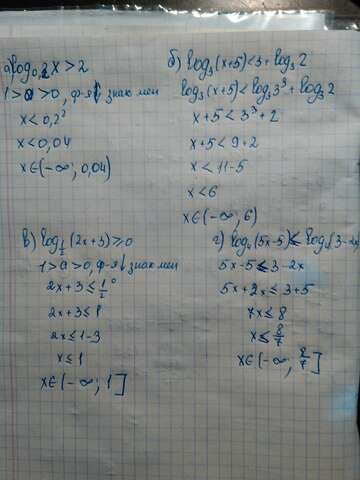 а) log₀,₂ x > 2
1 > a > 0, ф-я↓ знак мен
x < 0,2²
x < 0,04
x ∈ (-∞; 0,04)
б) log₃ (x+5) < 3 + log₃ 2
log₃ (x+5) < log₃ 3³ + log₃ 2
x+5 < 3³ + 2
x+5 < 9+2
x < 11-5
x < 6
x ∈ (-∞; 6)
в) log_½ (2x+3) ≥ 0
1 > a > 0, ф-я↓ знак мен
2x+3 ≤ ½⁰
2x+3 ≤ 1
2x ≤ 1-3
x ≤ 1
x ∈ (-∞; 1]
5x-5 ≤ 3-2x
5x+2x ≤ 3+5
7x ≤ 8
x ≤ 8/7
x ∈ (-∞; 8/7]